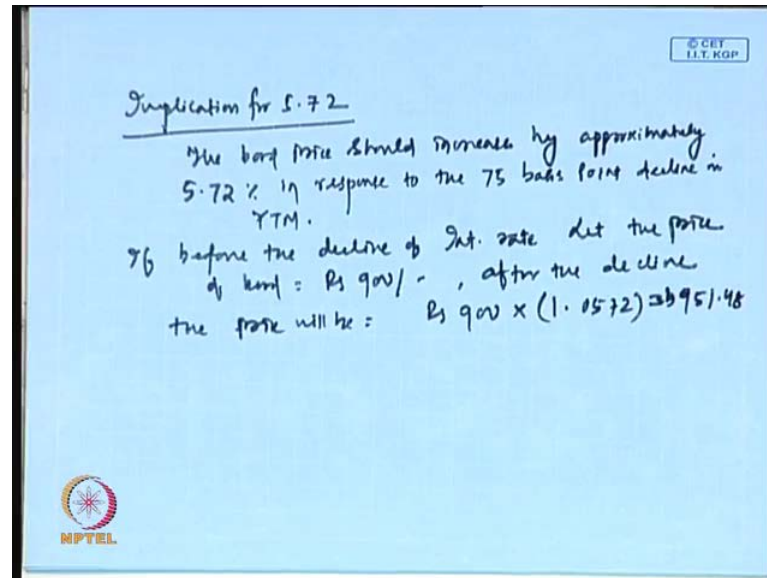 © CET
I.I.T. KGP
Implication for 5.72
The bond price should increase by approximately
5.72 % in response to the 75 basis point decline in
YTM.
If before the decline of Int. rate let the price
of bond = Rs 900/- , after the decline
the price will be = Rs 900 × (1.0572) = 951.48
NPTEL